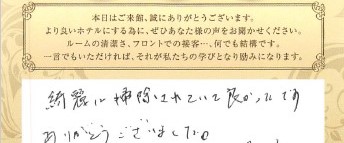 本日はご来館、誠にありがとうございます。
より良いホテルにする為に、ぜひあなた様の声をお聞かせください。
ルームの清潔さ、フロントでの接客…、何でも結構です。
一言でもいただければ、それが私たちの学びとなり励みになります。
綺麗に掃除されていて良かったです
ありがとうございました。